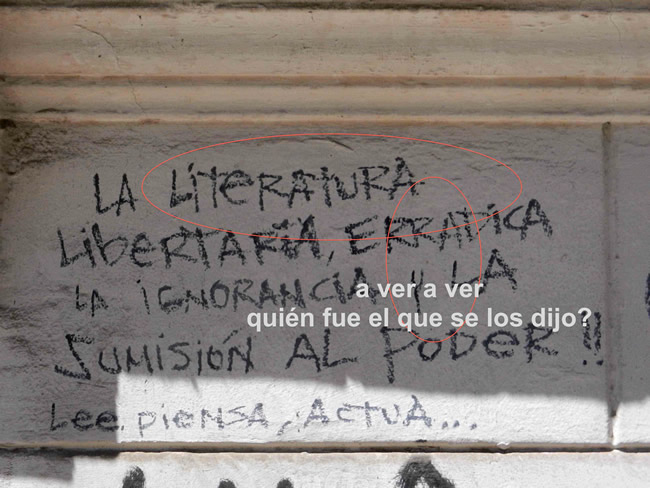 LA LITERATURA
LIBERTARIA, ERRADICA
LA IGNORANCIA Y LA
a ver a ver
quién fue el que se los dijo?
SUMISIÓN AL PODER!!
Lee, piensa, ACTUA...